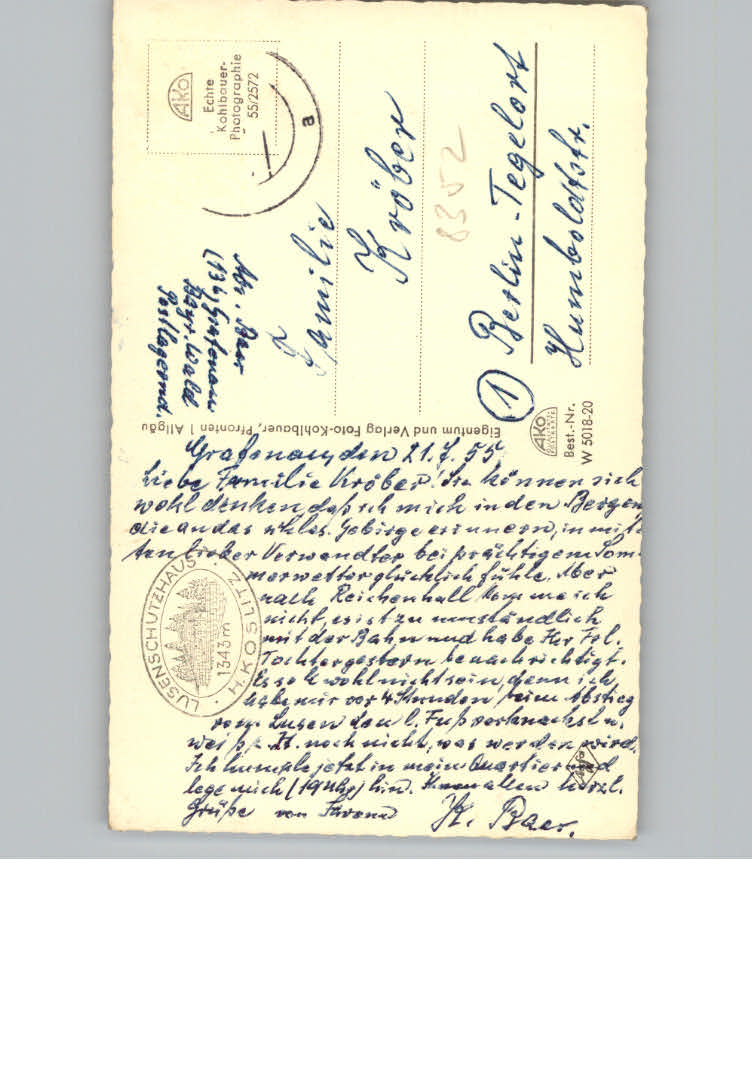 Grafenau, den 21.7.55
Liebe Familie Kröber! Sie können sich
wohl denken, daß ich mich in den Bergen
die an das schles. Gebirge erinnern, inmit-
ten lieber Verwandter bei prächtigem Som-
merwetter glücklich fühle. Aber
nach Reichenhall komme ich
nicht, es ist zu umständlich
mit der Bahn und habe Ihr Frl.
Tochter gestern benachrichtigt.
Es soll wohl nicht sein, denn ich
habe mir vor 4 Stunden beim Abstieg
vom Lusen den l. Fuß verknackst u.
weiß z. Zt. noch nicht, was werden wird.
Ich humple jetzt in mein Quartier und
lege mich (19 Uhr) hin. Ihnen allen herzl.
Grüße von Ihrem
K. Baer.
LUSENSCHUTZHAUS
1343 m
H. KOSLITZ
Eigentum und Verlag Foto-Kohlbauer, Pfronten 1 Allgäu
Abs. Baer
(13b) Grafenau
Bayr. Wald
Postlagernd.
AKO
Echte
Kohlbauer-
Photographie
55/2572
a
Familie
Kröber
8352
1 Berlin-Tegelort
Humboldtstr.
AKO
Best.-Nr.
W 5018-20
Agfa